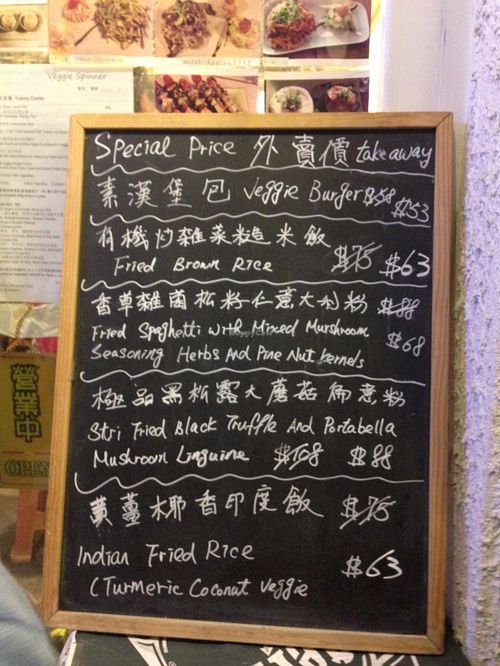 Veggie Spinner
Special Price 外賣價 takeaway
素漢堡包 Veggie Burger $58 $53
有機炒雜菜糙米飯
Fried Brown Rice $75 $63
香草雜菌松籽仁意大利粉 $88
Fried Spaghetti with Mixed Murshroom $68
Seasoning Herbs And Pine Nut kernels
極品黑松露大蘑菇扁意粉
Stri Fried Black Truffle And Portabella
Mushroom Linguine $108 $88
黃薑椰香印度飯 $75
Indian Fried Rice $63
(Turmeric Coconut Veggie
營業中
OPEN